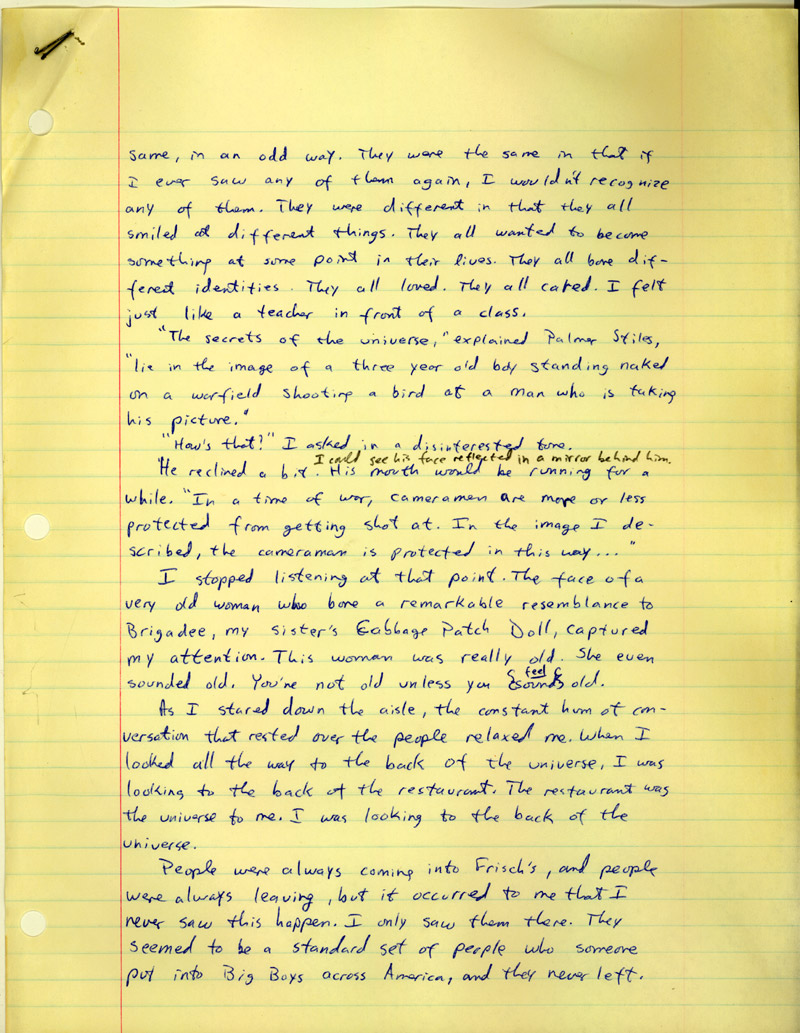 same, in an odd way. They were the same in that if
I ever saw any of them again, I wouldn't recognize
any of them. They were different in that they all
smiled at different things. They all wanted to become
something at some point in their lives. They all bore dif-
ferent identities. They all loved. They all cared. I felt
just like a teacher in front of a class.
"The secrets of the universe," explained Palmer Stiles,
"lie in the image of a three year old boy standing naked
on a warfield shooting a bird at a man who is taking
his picture."
"How's that?" I asked in a disinterested tone.
I could see his face reflected in a mirror behind him.
He reclined a bit. His mouth would be running for a
while. "In a time of war, cameramen are more or less
protected from getting shot at. In the image I de-
scribed, the cameraman is protected in this way..."
I stopped listening at that point. The face of a
very old woman who bore a remarkable resemblance to
Brigadee, my sister's Cabbage Patch Doll, captured
my attention. This woman was really old. She even
feel
sounded old. You're not old unless you sound old.
As I stared down the aisle, the constant hum of con-
versation that rested over the people relaxed me. When I
looked all the way to the back of the universe, I was
looking to the back of the restaurant. The restaurant was
the universe to me. I was looking to the back of the
universe.
People were always coming into Frisch's, and people
were always leaving, but it occurred to me that I
never saw this happen. I only saw them there. They
seemed to be a standard set of people who someone
put into Big Boys across America, and they never left.